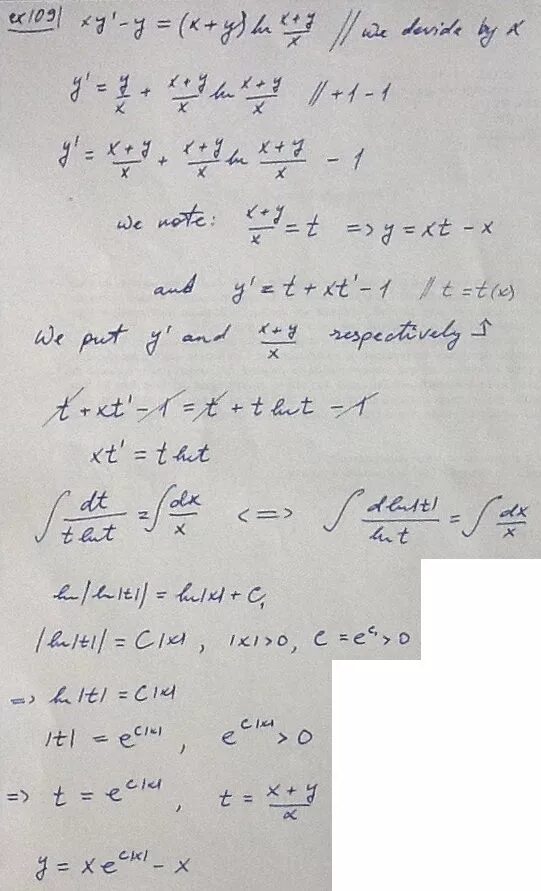 ex109| xy' - y = (x+y) ln (x+y)/x // we devide by x
y' = y/x + (x+y)/x ln (x+y)/x // +1-1
y' = (x+y)/x + (x+y)/x ln (x+y)/x - 1
we note: (x+y)/x = t => y = xt - x
and y' = t + xt' - 1 // t = t(x)
We put y' and (x+y)/x respectively ↑
t + xt' - 1 = t + t ln t - 1
xt' = t ln t
∫ dt/(t ln t) = ∫ dx/x <=> ∫ d ln|t|/ln t = ∫ dx/x
ln|ln|t|| = ln|x| + C₁
|ln|t|| = C|x|, |x|>0, C = e^(C₁) > 0
=> ln|t| = C|x|
|t| = e^(C|x|), e^(C|x|) > 0
=> t = e^(C|x|), t = (x+y)/x
y = x e^(C|x|) - x